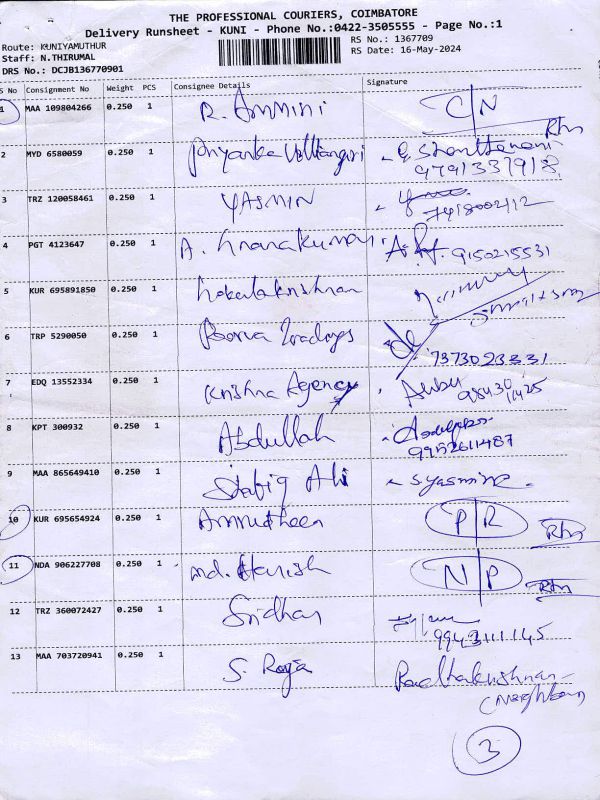 THE PROFESSIONAL COURIERS, COIMBATORE
Delivery Runsheet - KUNI - Phone No.:0422-3505555 - Page No.:1
Route: KUNIYAMUTHUR
RS No.: 1367709
Staff: N.THIRUMAL
RS Date: 16-May-2024
DRS No.: DCJB136770901
S No Consignment No Weight PCS Consignee Details Signature
1 MAA 109804266 0.250 1 R. Ammini C/N
Rtn
2 MYD 6580059 0.250 1 Priyanka
9791337918
3 TRZ 120058461 0.250 1 YASMIN
7418002112
4 PGT 4123647 0.250 1 A. 9150215531
5 KUR 695891850 0.250 1
6 TRP 5290050 0.250 1
7373023331
7 EDQ 13552334 0.250 1 Krishna Agency Anbu
8 KPT 300932 0.250 1 Abdullah
9952611487
9 MAA 865649410 0.250 1 Ali Syasmine
10 KUR 695654924 0.250 1 P R
Rtn
11 NDA 906227708 0.250 1 md. Harish N P
Rtn
12 TRZ 360072427 0.250 1 Sridhar
9943111145
13 MAA 703720941 0.250 1 S. Roja Radhakrishnan
(Neighbour
3